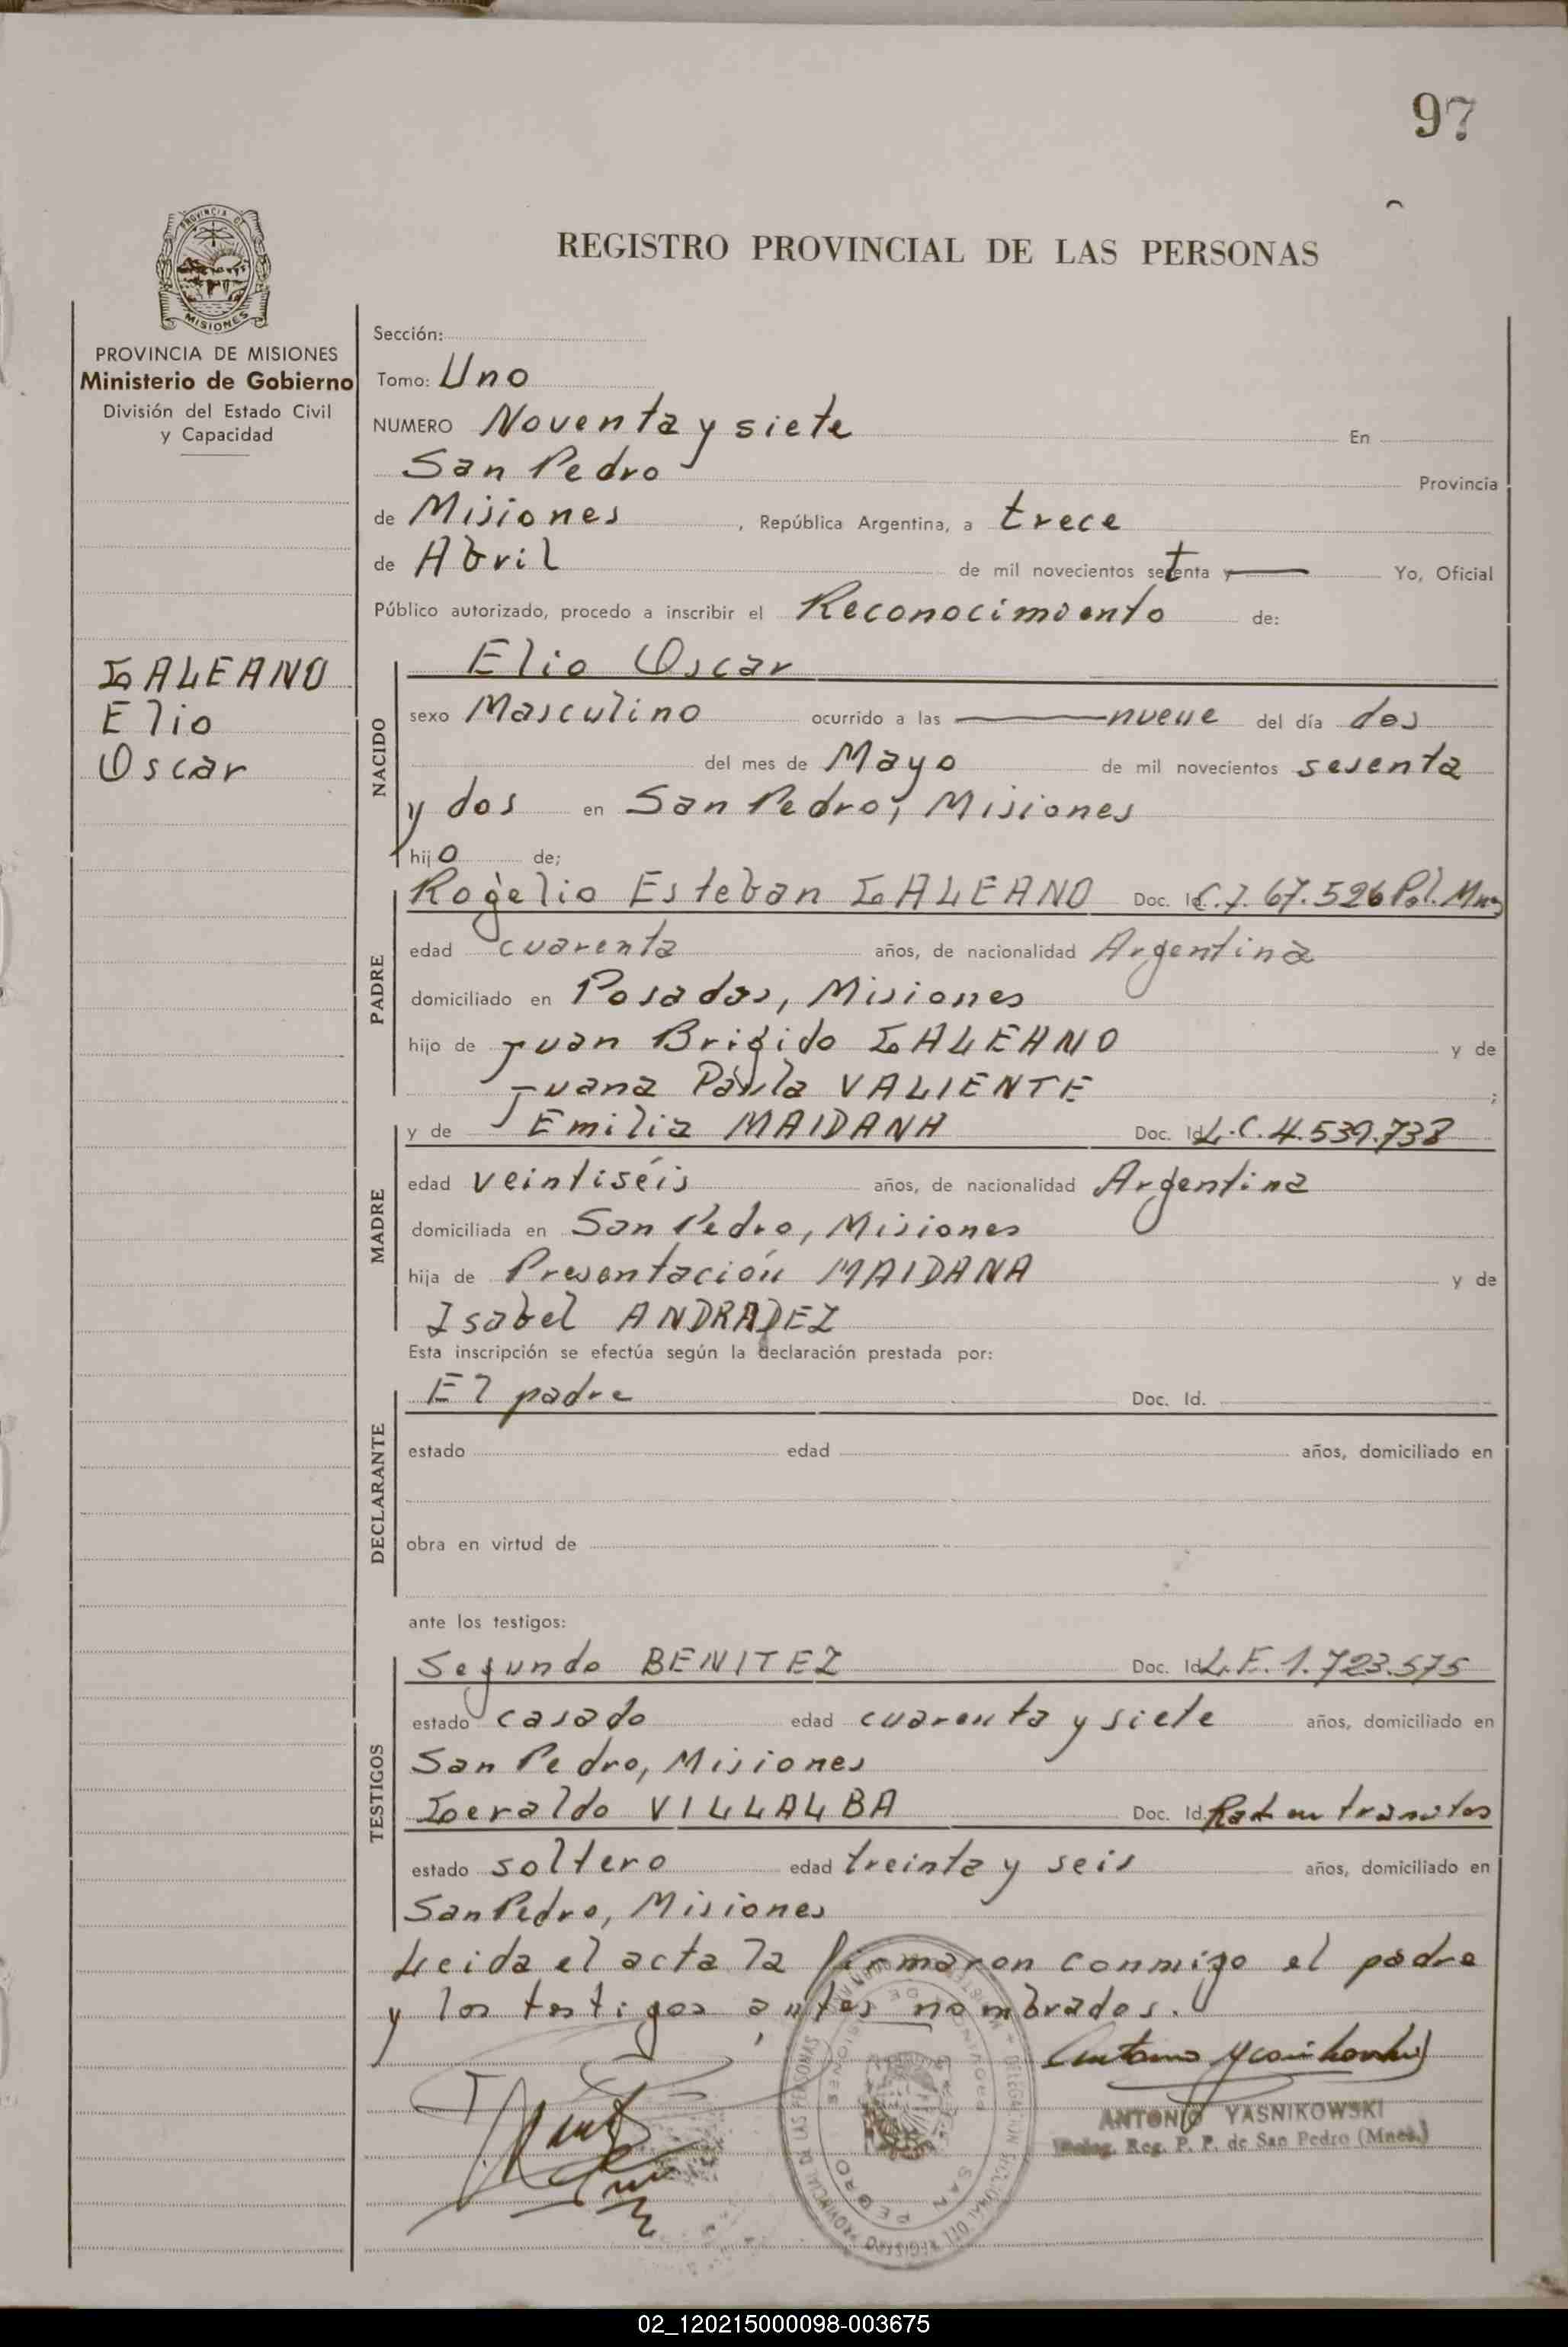 97
REGISTRO PROVINCIAL DE LAS PERSONAS
PROVINCIA DE MISIONES
Ministerio de Gobierno
División del Estado Civil
y Capacidad
GALEANO
Elio
Oscar
Sección:
Tomo: Uno
NUMERO Noventa y siete En
San Pedro Provincia
de Misiones, República Argentina, a trece
de Abril de mil novecientos setenta y — Yo, Oficial
Público autorizado, procedo a inscribir el Reconocimiento de:
Elio Oscar
NACIDO
sexo Masculino ocurrido a las — nueve del día dos
del mes de Mayo de mil novecientos sesenta
y dos en San Pedro, Misiones
hijo de;
PADRE
Rogelio Esteban GALEANO Doc. Id. C.I. 67.526 Pol. Mnes
edad cuarenta años, de nacionalidad Argentina
domiciliado en Posadas, Misiones
hijo de Juan Brigido GALEANO y de
Juana Paula VALIENTE ;
MADRE
y de Emilia MAIDANA Doc. Id. L.C. 4.539.738
edad veintiséis años, de nacionalidad Argentina
domiciliada en San Pedro, Misiones
hija de Presentación MAIDANA y de
Isabel ANDRADEZ
Esta inscripción se efectúa según la declaración prestada por:
DECLARANTE
El padre Doc. Id.
estado edad años, domiciliado en
obra en virtud de
ante los testigos:
TESTIGOS
Segundo BENITEZ Doc. Id. L.E. 1.723.575
estado casado edad cuarenta y siete años, domiciliado en
San Pedro, Misiones
Geraldo VILLALBA Doc. Id. Rad. en tramites
estado soltero edad treinta y seis años, domiciliado en
San Pedro, Misiones
Leida el acta la firmaron conmigo el padre
y los testigos antes nombrados.
ANTONIO YASNIKOWSKI
Deleg. Reg. P. P. de San Pedro (Mnes.)
02_120215000098-003675